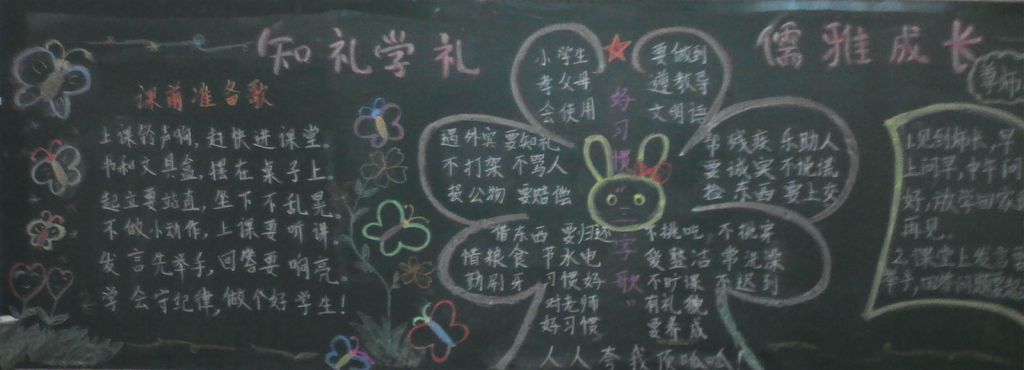 知礼学礼
儒雅成长
课前准备歌
上课铃声响，赶快进课堂。
书和文具盒，摆在桌子上。
起立要站直，坐下不乱晃。
不做小动作，上课要听讲。
发言先举手，回答要响亮。
学会守纪律，做个好学生！
好习惯字歌
小学生 要做到
孝父母 遵教导
会使用 文明语
遇外宾 要知礼
不打架 不骂人
损公物 要赔偿
帮残疾 乐助人
要诚实 不说谎
捡东西 要上交
借东西 要归还
惜粮食 节水电
勤刷牙 习惯好
对老师
好习惯
不挑吃 不挑穿
衣整洁 常洗澡
不旷课 不迟到
有礼貌
要养成
人人夸我顶呱呱！
尊师
1.见到师长，早
上问早，中午问
好，放学回家说
再见。
2.课堂上发言要
举手，回答问题要起